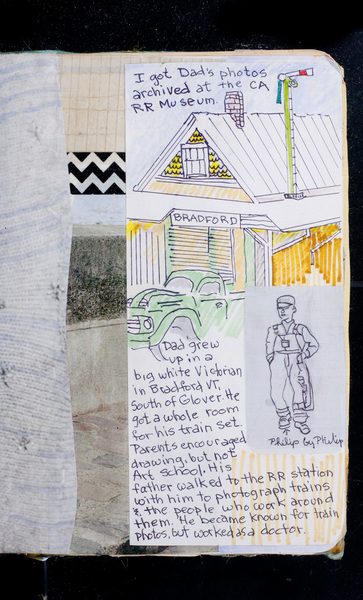 I got Dad's photos
archived at the CA
RR Museum.
BRADFORD
Dad grew
up in a
big white Victorian
in Bradford, VT,
South of Glover. He
got a whole room
for his train set.
Parents encouraged
drawing, but not
Art school. His
father walked to the RR station
with him to photograph trains
& the people who work around
them. He became known for train
photos, but worked as a doctor.
Philip by Philip